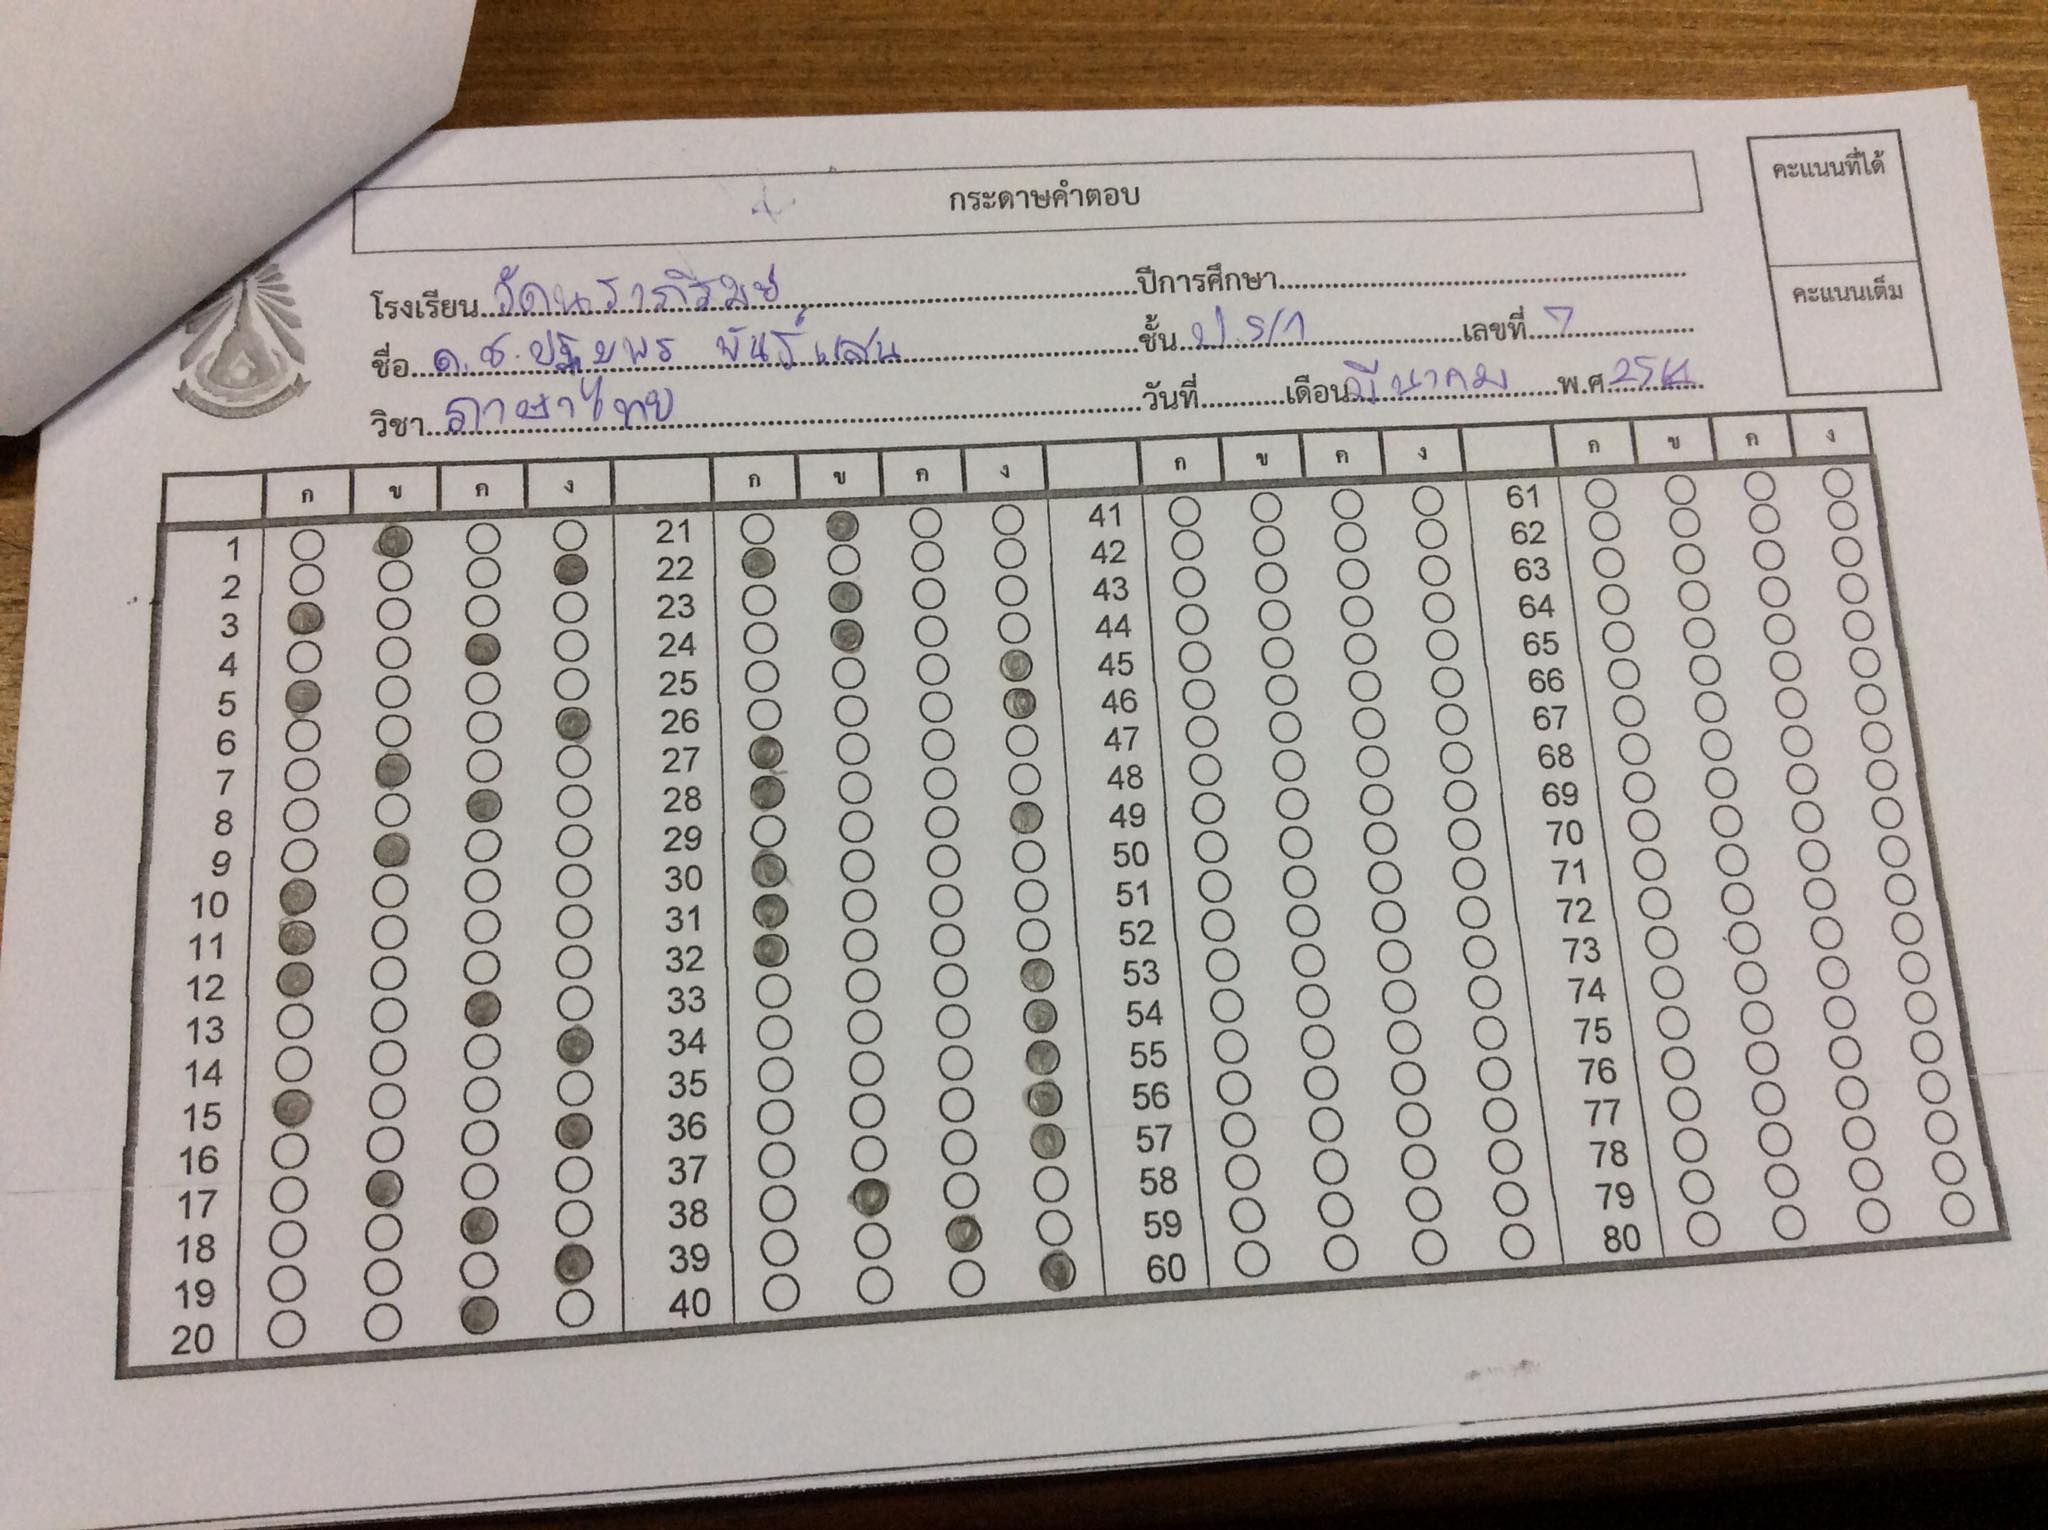 กระดาษคำตอบ
คะแนนที่ได้
คะแนนเต็ม
โรงเรียน วัดนราภิรมย์ ปีการศึกษา
ชื่อ ด.ช. พันธ์แสน ชั้น ป.5/1 เลขที่ 7
วิชา ภาษาไทย วันที่ เดือน มีนาคม พ.ศ.
ก ข ค ง ก ข ค ง ก ข ค ง ก ข ค ง
1 21 41 61
2 22 42 62
3 23 43 63
4 24 44 64
5 25 45 65
6 26 46 66
7 27 47 67
8 28 48 68
9 29 49 69
10 30 50 70
11 31 51 71
12 32 52 72
13 33 53 73
14 34 54 74
15 35 55 75
16 36 56 76
17 37 57 77
18 38 58 78
19 39 59 79
20 40 60 80